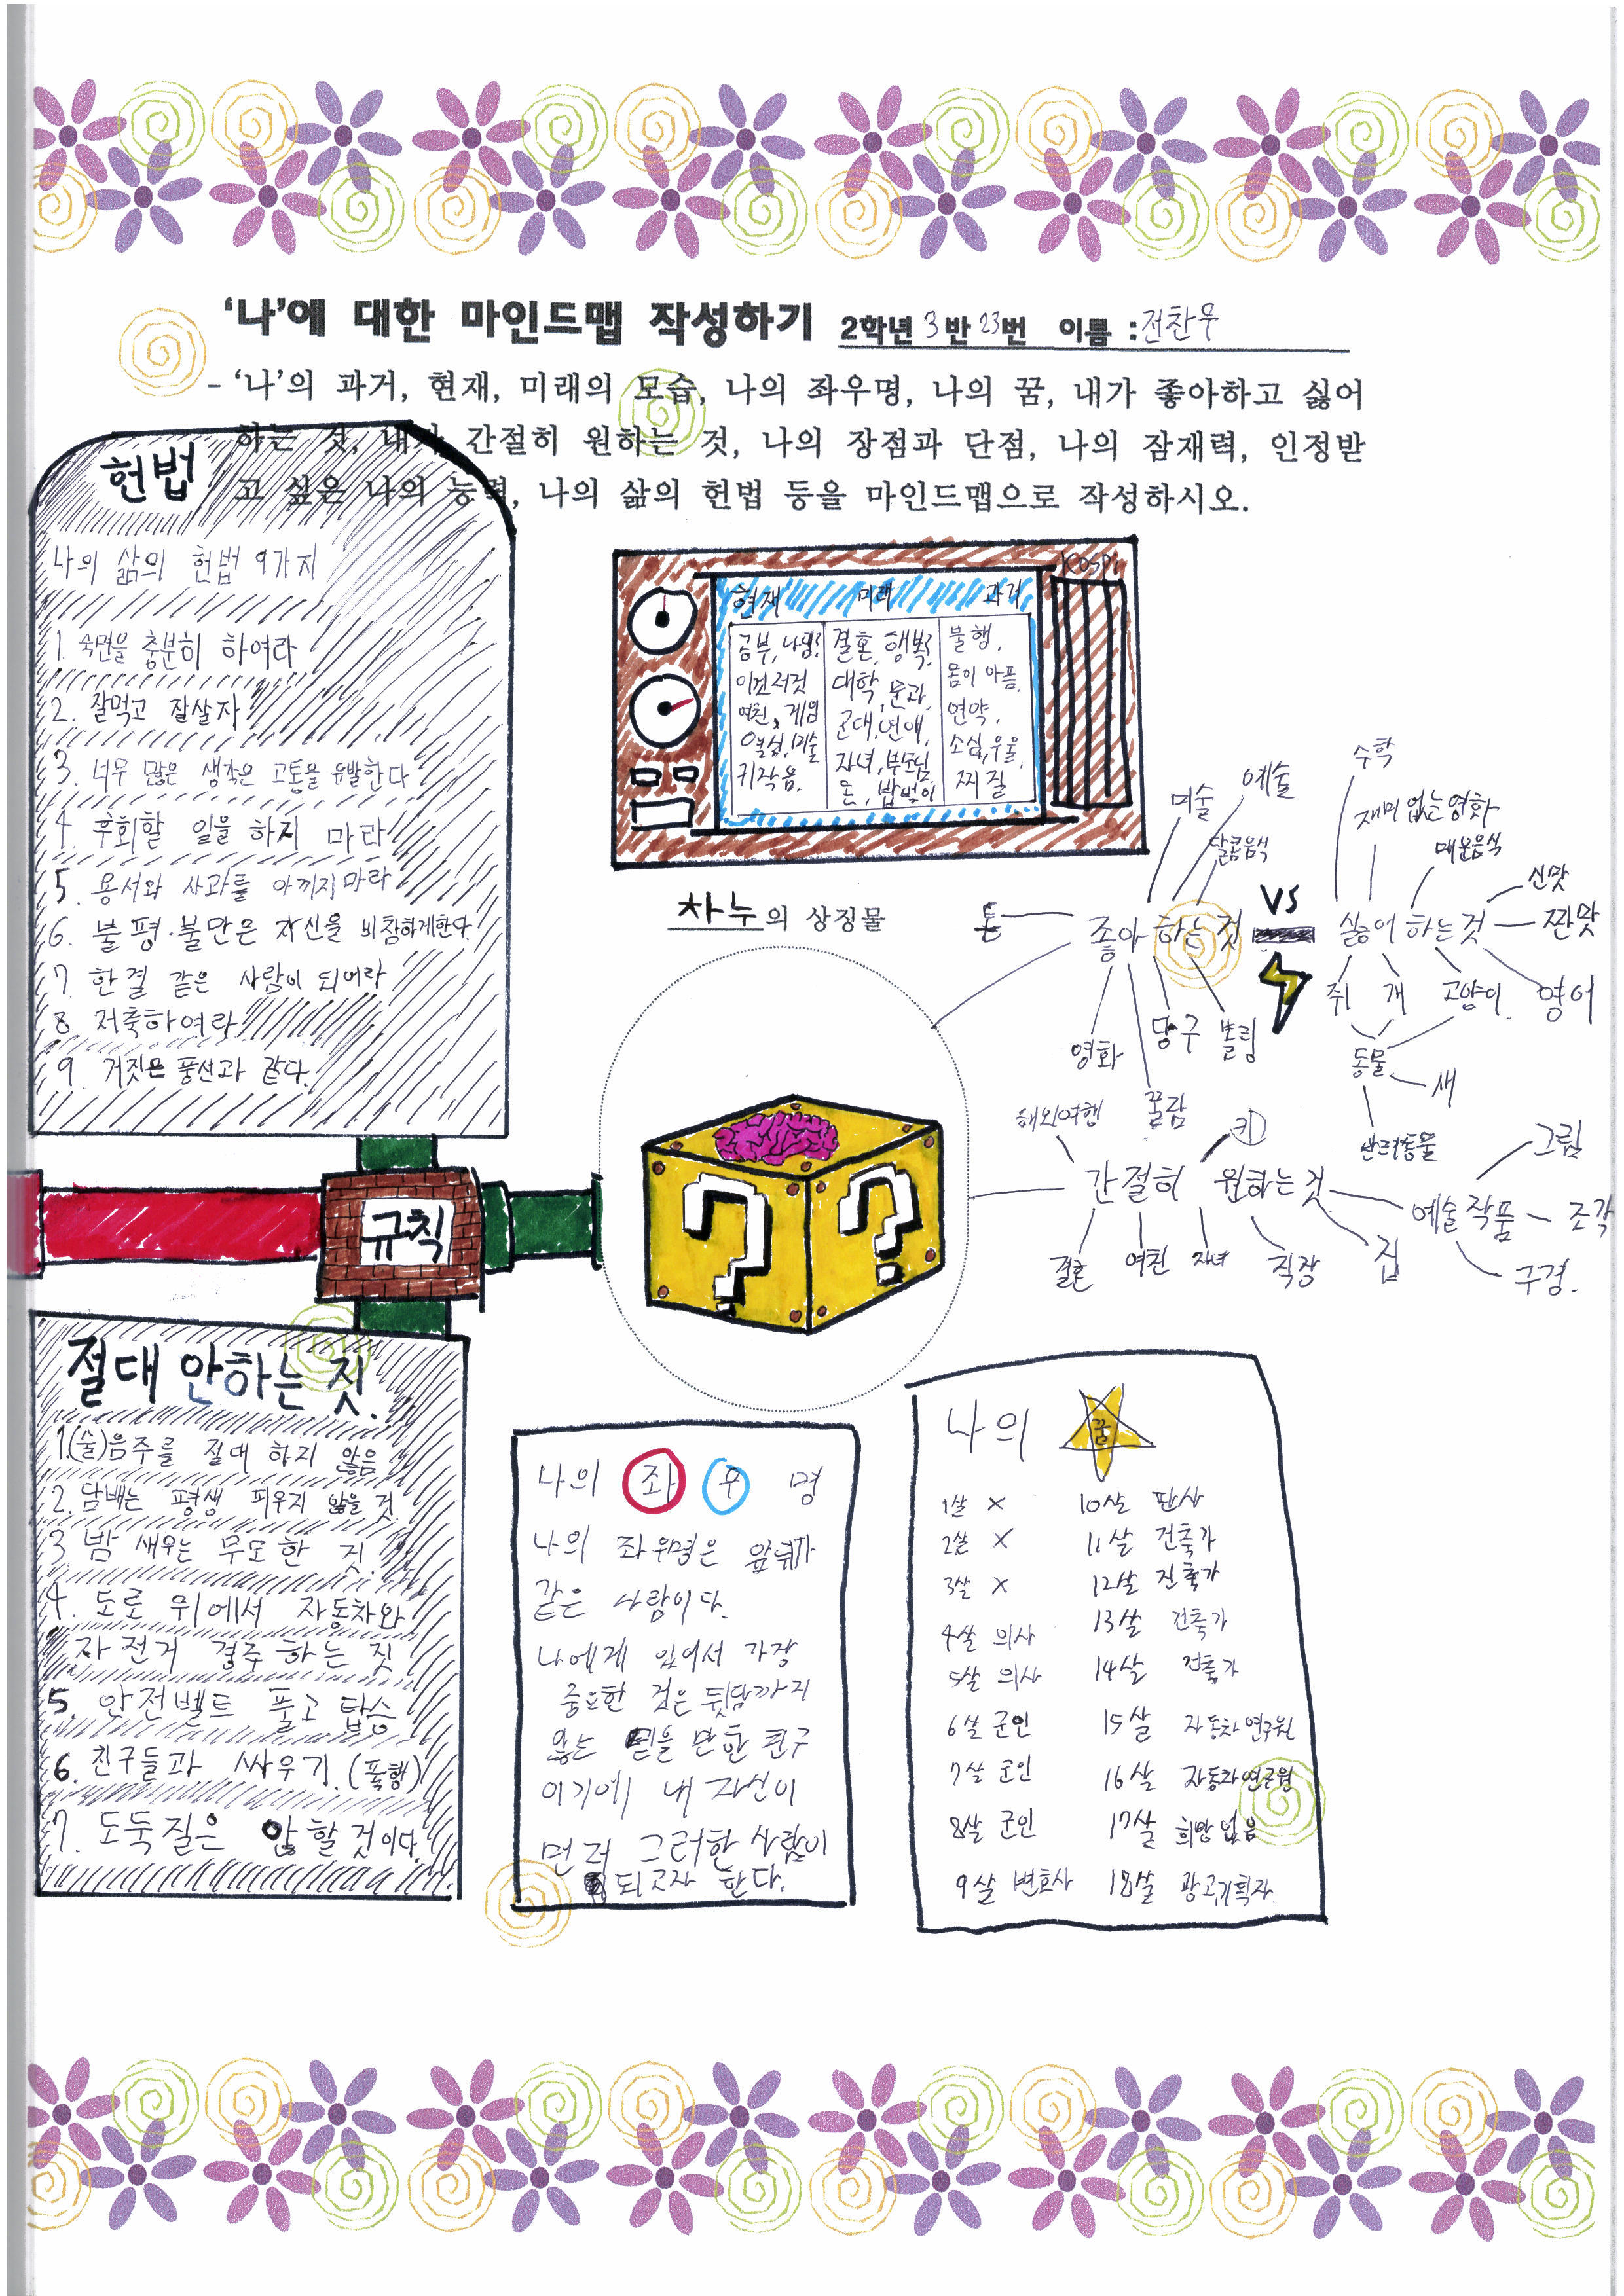 '나'에 대한 마인드맵 작성하기 2학년 3반 23번 이름 : 전찬우
- '나'의 과거, 현재, 미래의 모습, 나의 좌우명, 나의 꿈, 내가 좋아하고 싫어
하는 것, 내가 간절히 원하는 것, 나의 장점과 단점, 나의 잠재력, 인정받
고 싶은 나의 능력, 나의 삶의 헌법 등을 마인드맵으로 작성하시오.
헌법
나의 삶의 헌법 9가지
1. 숙면을 충분히 하여라
2. 잘먹고 잘살자
3. 너무 많은 생각은 고통을 유발한다
4. 후회할 일을 하지 마라
5. 용서와 사과를 아끼지마라
6. 불평·불만은 자신을 비참하게한다.
7 한결 같은 사람이 되어라
8 저축하여라
9 거짓은 풍선과 같다.
규칙
절대 안하는 짓.
1.(술)음주를 절대 하지 않음
2. 담배는 평생 피우지 않을 것
3 밤 새우는 무모한 짓.
4. 도로 위에서 자동차와
자전거 경주하는 짓
5. 안전벨트 풀고 탑승
6. 친구들과 싸우기.(폭행)
7. 도둑질은 안할것이다.
Kospi
현재 미래 과거
공부,
이것저것
여친, 게임
열심, 미술
키작음.
결혼, 행복,
대학, 문과,
군대, 연애,
자녀, 부모님,
돈, 밥벌이
불행,
몸이 아픔,
연약,
소심, 우울,
찌질
차누의 상징물
좋아하는 것
돈
미술
예술
달콤음식
영화
꿀잠
당구
볼링
VS
싫어하는것
수학
재미없는영화
매운음식
신맛
짠맛
영어
쥐
개
고양이
동물
새
간절히 원하는것
해외여행
키
결혼
여친
자녀
직장
집
예술작품
그림
조각
구경.
나의 좌우명
나의 좌우명은 앞뒤가
같은 사람이다.
나에게 있어서 가장
중요한 것은 뒷담까지
않는 믿을 만한 친구
이기에 내 자신이
먼저 그러한 사람이
되고자 한다.
나의 꿈
1살 X
2살 X
3살 X
4살 의사
5살 의사
6살 군인
7살 군인
8살 군인
9살 변호사
10살 판사
11살 건축가
12살 건축가
13살 건축가
14살 건축가
15살 자동차연구원
16살 자동차연구원
17살 희망없음
18살 광고기획자